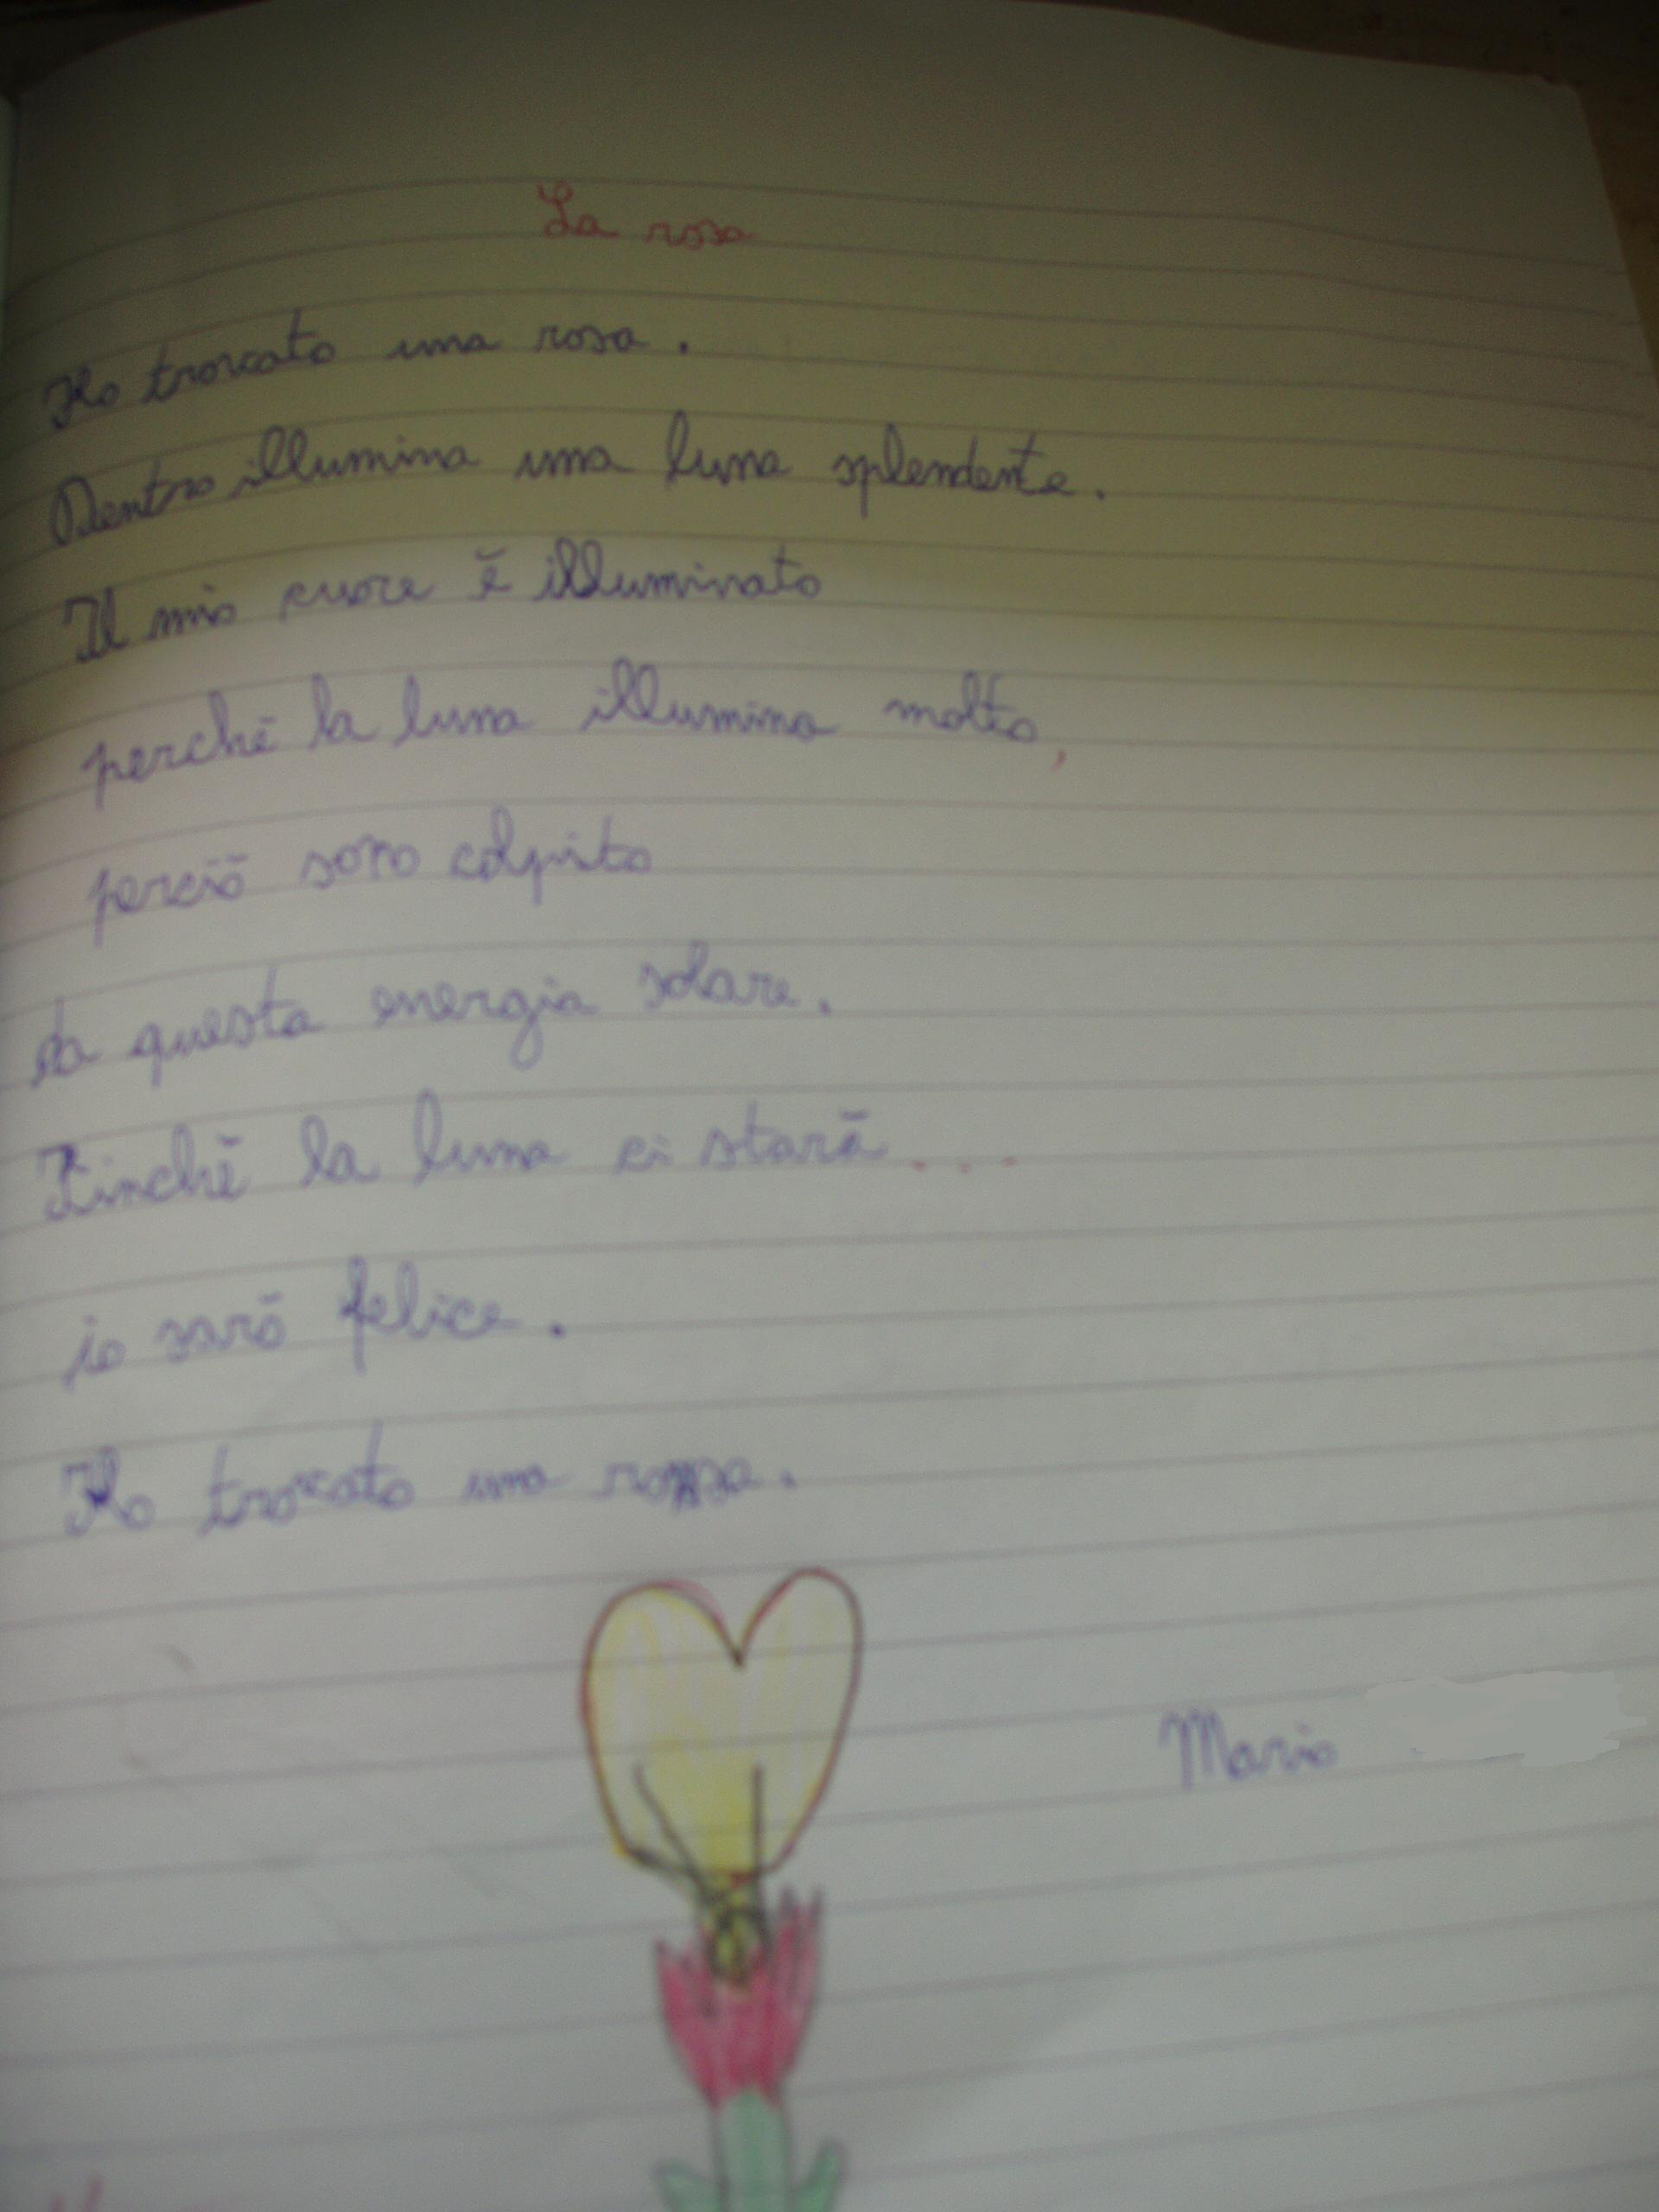 La rosa
Ho trovato una rosa.
Dentro illumina una luna splendente.
Il mio cuore è illuminato
perché la luna illumina molto,
perciò sono colpito
da questa energia solare.
Finché la luna ci starà...
io sarò felice.
Ho trovato una rosa.
Mario